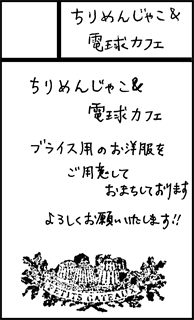 ちりめんじゃこ&
電球カフェ
ちりめんじゃこ&
電球カフェ
ブライス用のお洋服を
ご用意して
おまちしております
よろしくお願いいたします!!
PETITS GATEAUX